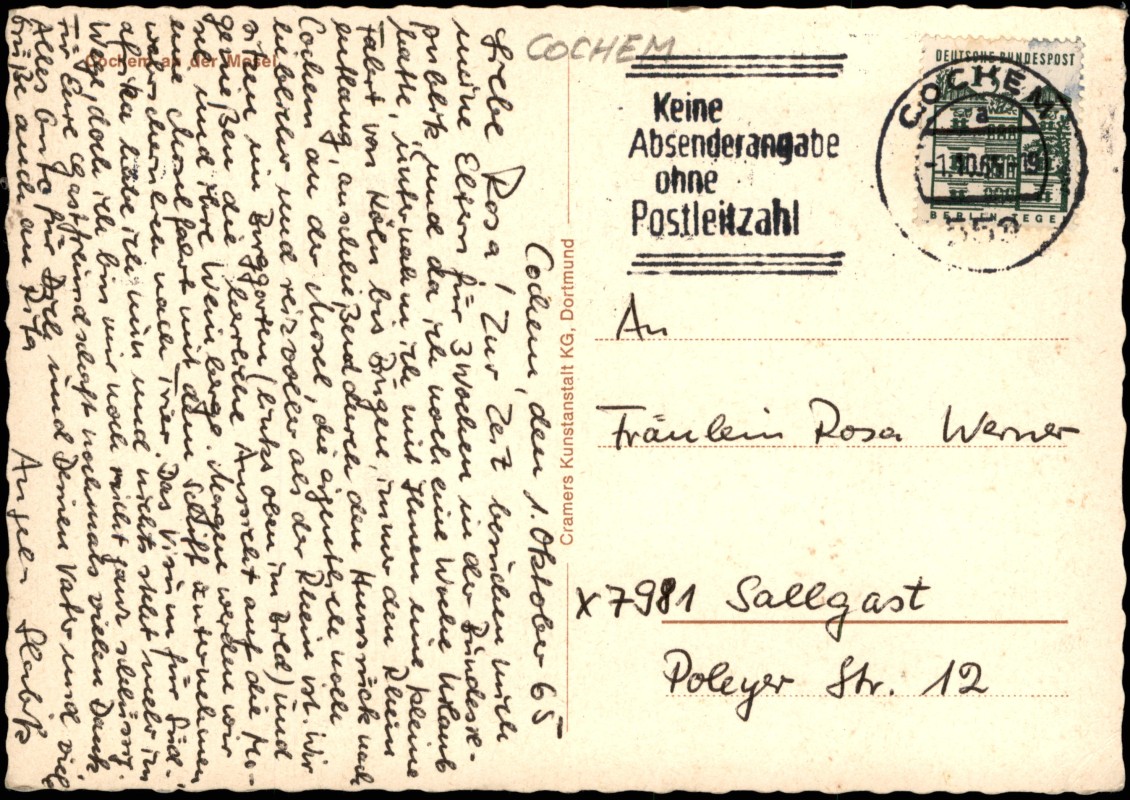 Cochem an der Mosel
Cochem, den 1. Oktober 65
Liebe Rosa! Zur Zeit besuchen mich
meine Eltern für 3 Wochen in der Bundesre-
publik und da ich noch eine Woche Urlaub
hatte, unternahm ich mit Ihnen eine kleine
Fahrt von Köln bis Bingen, immer den Rhein
entlang, anschließend durch den Hunsrück nach
Cochem an der Mosel, die eigentlich noch
lieblicher und reizvoller als der Rhein ist. Wir
sitzen im Burggarten (links oben im Bild) und
genießen die herrliche Aussicht auf die Mo-
sel und ihre Weinberge. Morgen werden wir
eine Moselfahrt mit dem Schiff unternehmen
wahrscheinlich nach Trier. Das Visum für Süd-
afrika habe ich nun und nichts steht mehr im
Wege, doch ich bin mir noch nicht ganz schlüssig.
Für Eure Gastfreundschaft nochmals vielen Dank
Alles Gute für Dich und Deinen Vater und viele
Grüße auch an Rita
Cramers Kunstanstalt KG, Dortmund
COCHEM
Keine
Absenderangabe
ohne
Postleitzahl
COCHEM
a
DEUTSCHE BUNDESPOST
BERLIN TEGEL
An
Fräulein Rosa Werner
X7981 Sallgast
Poleyer Str. 12